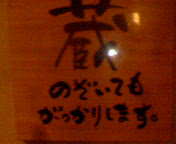 蔵
のぞいても
がっかりします。